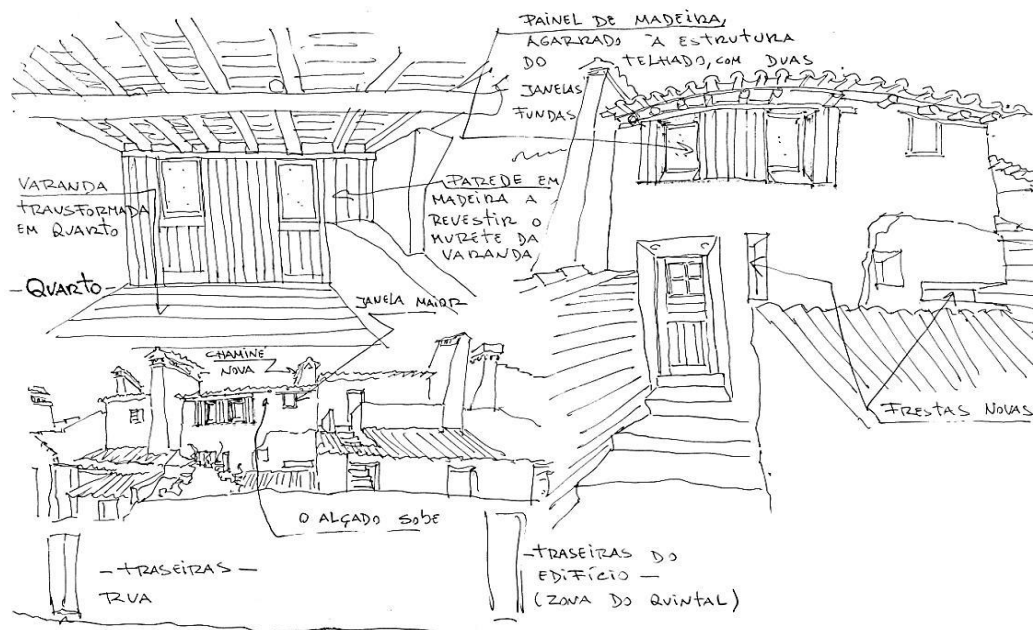 PAINEL DE MADEIRA,
AGARRADO À ESTRUTURA
DO TELHADO, COM DUAS
JANELAS
FUNDAS
VARANDA
TRANSFORMADA
EM QUARTO
PAREDE EM
MADEIRA A
REVESTIR O
MURETE DA
VARANDA
- QUARTO -
JANELA MAIOR
CHAMINÉ
NOVA
FRESTAS NOVAS
O ALÇADO SOBE
- TRASEIRAS -
RUA
- TRASEIRAS DO
EDIFÍCIO -
(ZONA DO QUINTAL)